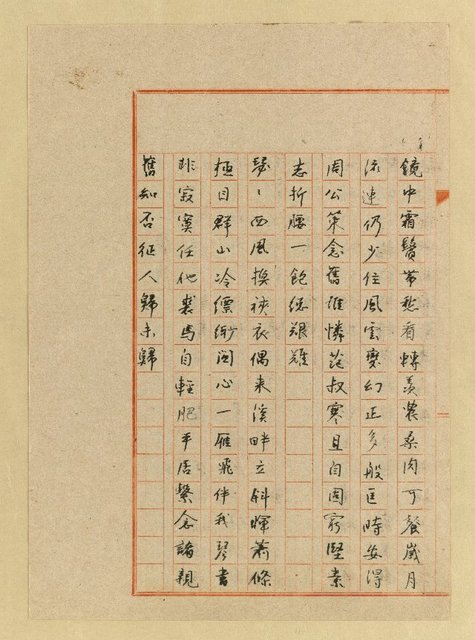 鏡中霜鬢帶愁看轉羨農桑肉可餐歲月
流連仍少住風雲變幻正多般匡時安得
周公策念舊誰憐范叔寒且自固窮堅素
志折腰一飽總艱難
瑟〻西風換裌衣偶來溪畔立斜暉蕭條
極目群山冷縹緲關心一雁飛伴我琴書
排寂寞任他裘馬自輕肥平居繫念諸親
舊知否征人歸未歸